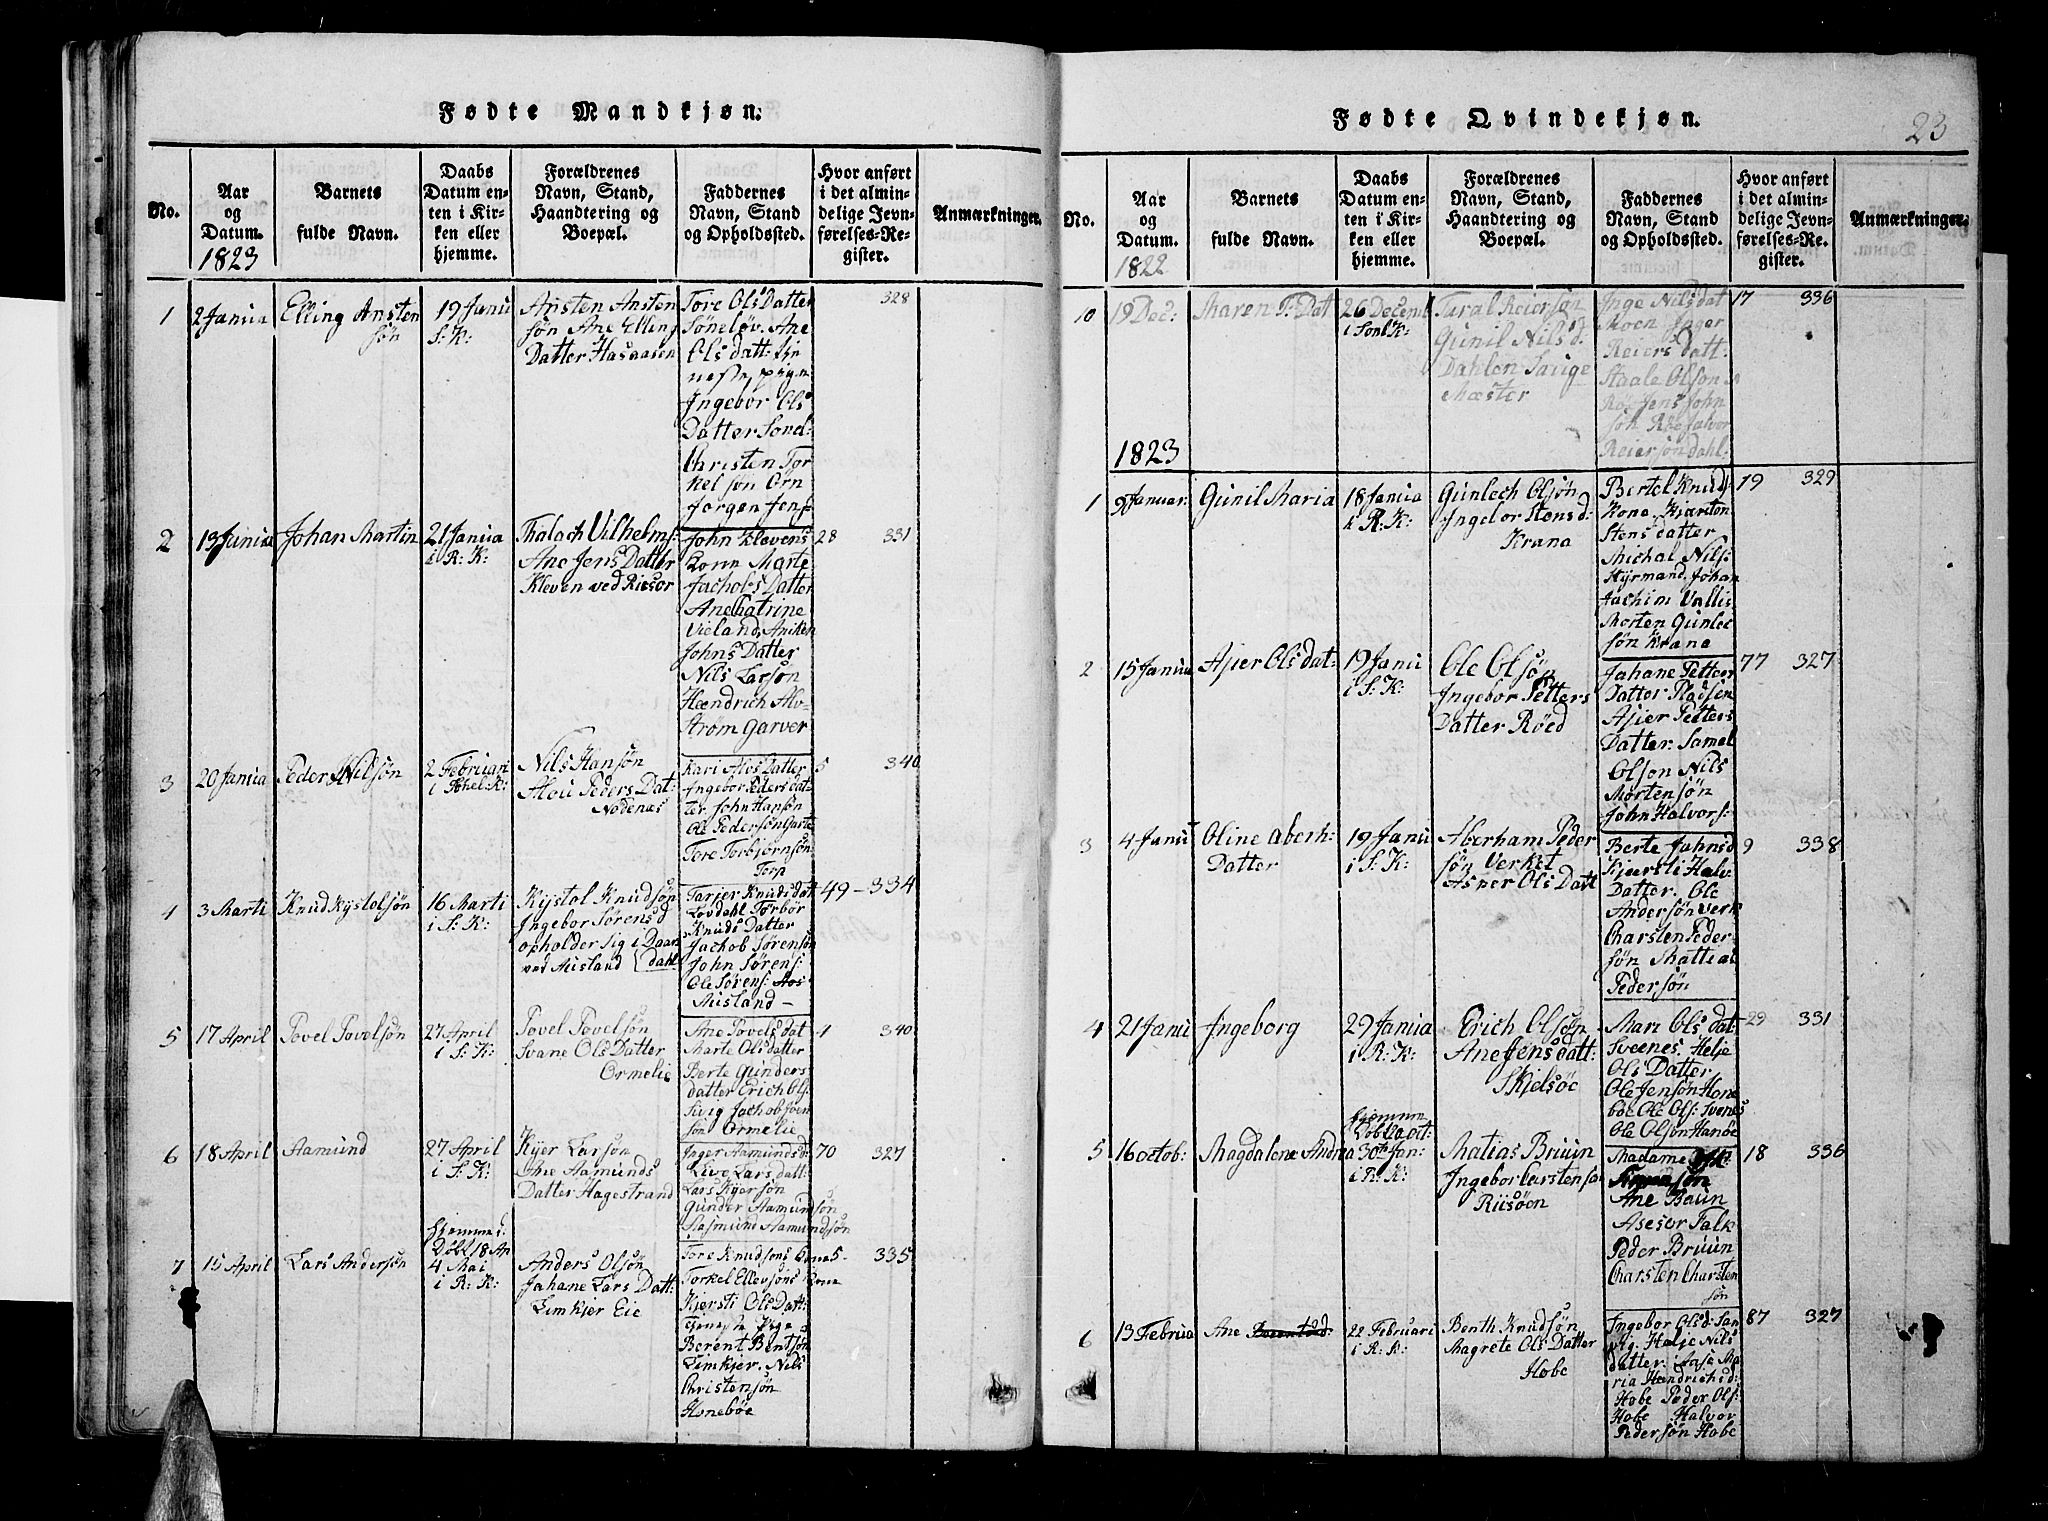 Fødte Mandkjøn.
No.
Aar
og
Datum.
1823
Barnets
fulde Navn.
Daabs
Datum en-
ten i Kir-
ken eller
hjemme.
Forældrenes
Navn, Stand,
Haandtering og
Boepæl.
Faddernes
Navn, Stand
og Opholdssted.
Hvor anført
i det almin-
delige Jevn-
førelses-Re-
gister.
Anmærkninger.
1
2 Janua
Elling Ansten
søn
19 Janu
S: K:
Ansten Ansten
søn Ane Elling
Datter Hasaasen
Tore Ols Datter
Søneløv. Ane
Ols datt:
Ingebor Ols
Datter Sond-
Christen Tor
kel søn Ørn
Jorgen Jens
328
2
13 Janua
Johan Martin
21 Janua
i R: K:
Thaloch Vilhelms:
Ane Jens Datter
Kleven ved Riisør
John Klevens
Kone Marte
Jachobs Datter
Ane Catrine
Vieland, Aniken
Johns Datter
Nils Larsøn
Hendrich Alv-
strøm Garver
28 331
3
20 Janua
Peder Nilsøn
2 Februari
i
Nils Hansøn
Alou Peders Dat:
Nodenæs
Kari Alvs Datter
Ingebor Peders dat-
ter John Hansøn
Ole Pedersøn Garte
Tore Torbjørnsøn
Torp
5 340
4
3 Marti
Knud Kystolsøn
16 Marti
i S: K:
Kystol Knudsøn
Ingebor Sørens d
opholder sig i Daar
ved Ausland dahl
Tarjer Knuds dat
Lovdahl Torbor
Knuds Datter
Jachob Sørensøn
John Sørens:
Ole Sørens:
Ausland –
49 – 334
5
17 April
Povel Povelsøn
27 April
i S: K:
Povel Povelsøn
Svane Ols Datter
Ormelie
Ane Povels dat
Marte Ols datter
Berte Gunders
datter Erich Ols
Sivig Jachob Sven
søn Ormelie
1 340
6
18 April
Aamund
27 April
i S: K:
Kyer Larsøn
Ane Aamunds
Datter Hagestrand
Inger Aamunds d:
Live Lars datt:
Lars Kyersøn
Gunder Aamund søn
Aasmund Aamundsøn
70 327
7
15 April
Lars Andersøn
Hjemme
Døbt 18 Ap
4 Mai
i R: K:
Anders Olsøn
Jahane Lars Datt:
Limkjer Eie
Tore Knudsons Kone
Torkel Ellevsøns Kone
Kjersti Ols Datt:
Tieneste Pige
Berent Bentsøn
Limkjer. Nils
Christensøn
Honebøe
5 – 335
Fødte Qvindekjøn.
23
No.
Aar
og
Datum.
1822
Barnets
fulde Navn.
Daabs
Datum en-
ten i Kir-
ken eller
hjemme.
Forældrenes
Navn, Stand,
Haandtering og
Boepæl.
Faddernes
Navn, Stand
og Opholdssted.
Hvor anført
i det almin-
delige Jevn-
førelses-Re-
gister.
Anmærkninger.
10
19 Dec:
Maren T: Dat
26 Decemb
i Sønl K:
Taral Reiersøn
Gunil Nils d.
Dahlen Sauge
Mæster
Inge Nils dat
Moen Inger
Reiers datt:
Staale Olson
Røe Jens John
søn Røe Halvor
Reiersøn dahl:
17 336
1823
1
9 Januar:
Gunil Maria
18 Janua
i R: K:
Gunlech Olsøn
Ingebor Stens d:
Krana
Bertel Knud
Kone. Kjersten
Stens datter
Michal Nils:
Styrmand, Johan
Jachim Vallis
Morten Gunlec
søn Krane
19 329
2
15 Janua
Ajier Ols dat:
19 Janu
i S: K:
Ole Olsøn
Ingebor Petters
Datter Røed
Jahane Petter
Datter Pladsen
Ajier Petters
Datter. Samel
Olson Nils
Mortensøn
John Halvors:
77 327
3
4 Janu
Oline Aberh:
Datter
19 Janu
i S: K:
Aberham Peder
søn Verket
Asper Ols Datt
Berte Jahns d
Kjersti Halv-
Datter. Ole
Andersøn verk
Charsten Peder-
søn Mattias
Pedersøn
9 338
4
21 Janu
Ingeborg
29 Janua
i R: K:
Erich Olsøn
Ane Jens datt:
Skjelsøe
Mari Ols dat
Sveenes. Helje
Ols Datter
Ole Jensøn Hone
bøe Ole Ols: Svenes
Ole Olsøn Hanøe
29 331
5
16 octob:
Magdalene Andrea
Hjemme
Døbt oct:
30te Jan:
i R: K:
Matias Bruun
Ingebor Carstensen
Riisøen
Madame
Ane Baun
Asesor Falk
Peder Bruun
Charsten Charsten
søn
18 336
6
13 Februa
Ane
22 Februari
i R: K:
Benth Knudsøn
Magrete Ols Datter
Hobe
Ingebor Ols d: San
vig. Helje Nils
datter. Aase Ma
ria Hendrichs d:
Hobe Peder Ols:
Hobe Halvor
Pedersøn Hobe
87 327